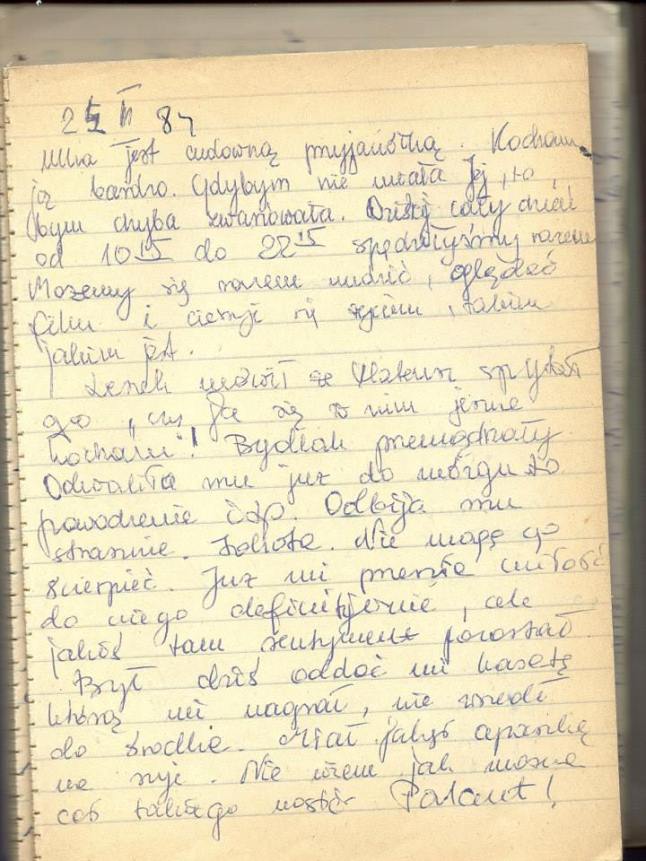 25 II 84
Ulka jest cudowną przyjaciółką. Kocham
ją bardzo. Gdybym nie miała jej, to
bym chyba zwariowała. Dzisiaj cały dzień
od 10 15 do 22 15 spędziłyśmy razem
Możemy się razem nudzić, oglądać
film i cieszyć się życiem, takim
jakim jest.
Leszek mówił że spytał
go "czy ja się w nim jeszcze
kocham"! Bydlak przemądrzały
Odwaliło mu już do mózgu to
powodzenie Odbija mu
strasznie. Idiota. Nie mogę go
ścierpieć. Już mi przeszła miłość
do niego definitywnie, ale
jakiś tam sentyment pozostał.
Był dziś oddać mi kasetę
którą mi nagrał, nie wszedł
do środka. Miał jakąś apaszkę
na szyi. Nie wiem jak można
coś takiego nosić. Palant!